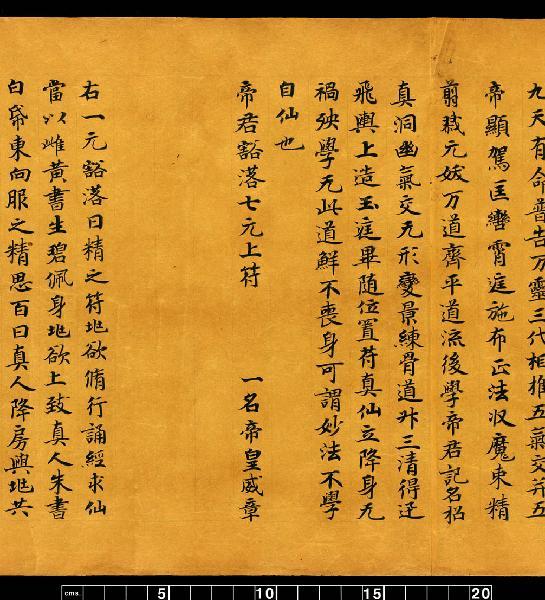 九天有命普告万靈三代相推五氣交并五
帝顯駕匡轡霄庭施布正法収魔束精
翦馘元妖万道齊平道流後學帝君記名招
真洞幽氣交无形變景練骨道昇三清得迂
飛輿上造玉庭畢随位置苻真仙立降身无
禍殃學无此道鮮不喪身可謂妙法不學
自仙也
帝君豁落七元上符 一名帝皇威章
右一元豁落日精之符兆欲脩行誦經求仙
當以雌黃書生碧佩身兆欲上致真人朱書
白帋東向服之精思百日真人降房與兆共
cms 5 10 15 20